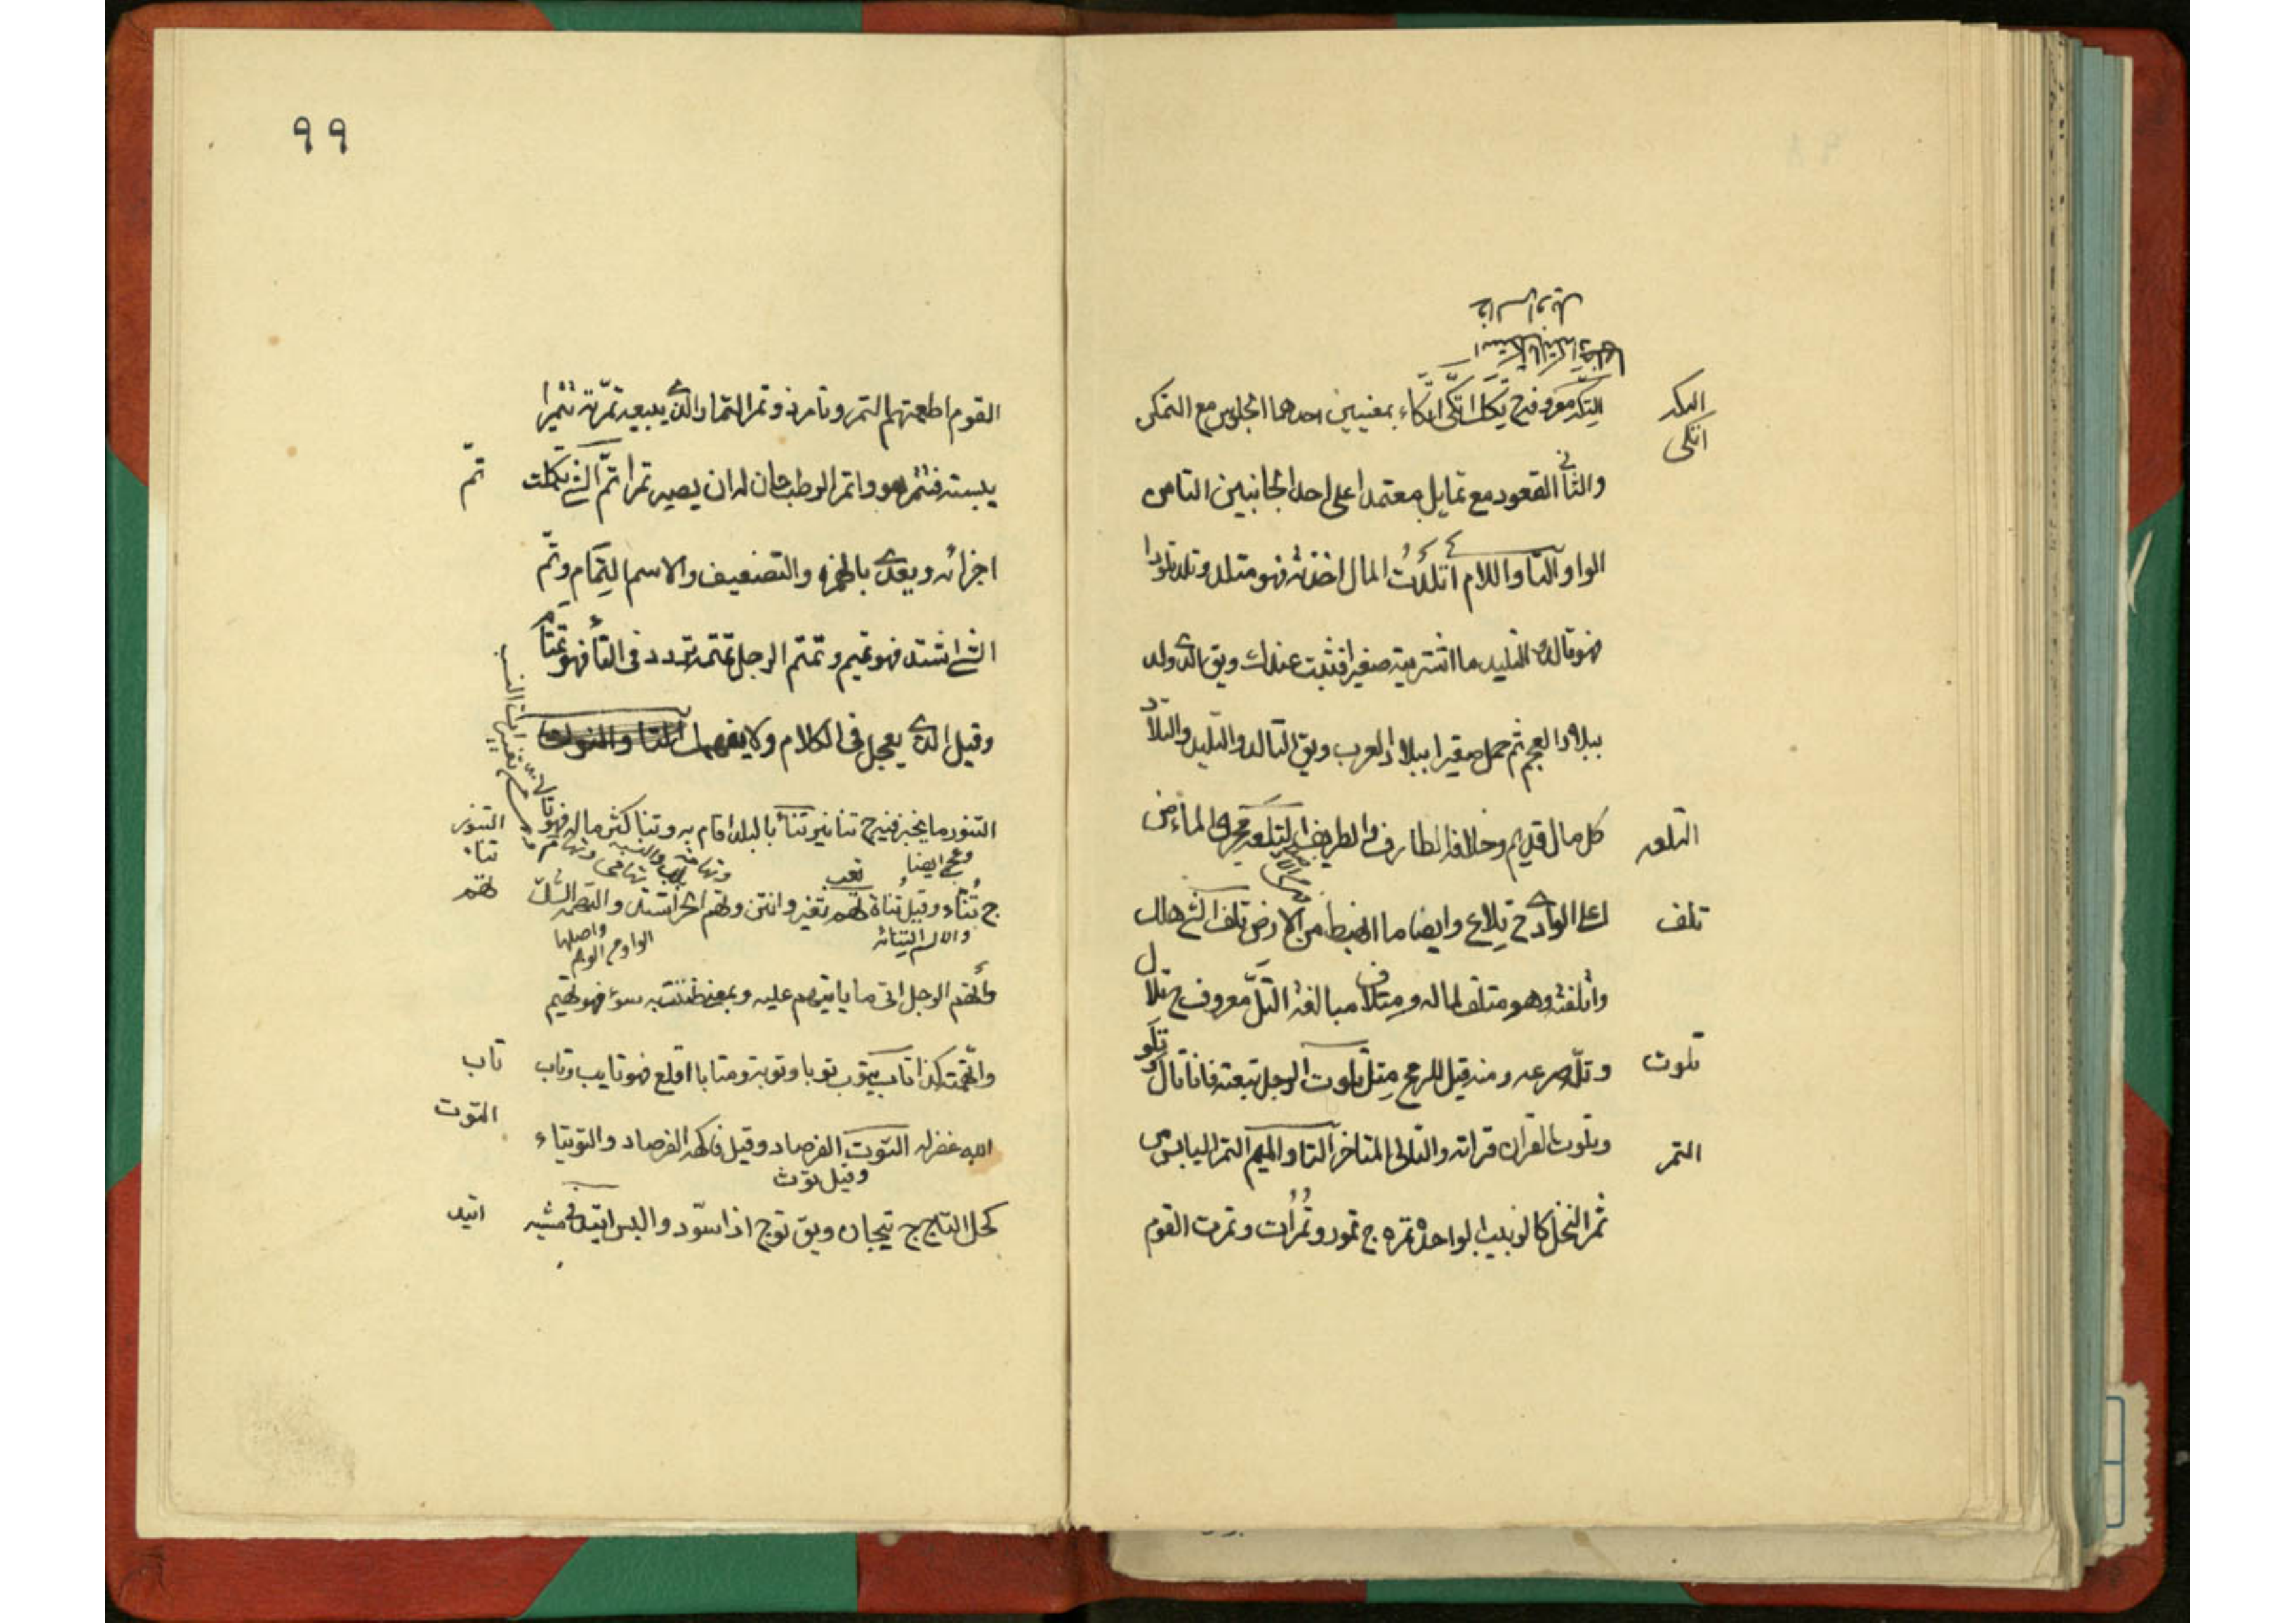 التكد
اتكى
التكد معروف ج تكك اتّكى اتّكاء بمعنيين احدهما الجلوس مع التمكن
والثاني القعود مع تمايل معتمدا على احد الجانبين التا من
الواو التا واللام اتلدت المال اخذته فهو متلد وتلد تلودا
فهو تالد التليد ما اشتريته صغيرا فثبت عندك ويق الذي ولد
ببلاد العجم ثم حمل صغيرا ببلاد العرب ويق التالد والتليد والتلاد
التلعه
كل مال قديم وخلافه الطارف والطريف التلعه مجرى الماء من
تلف
اعلى الوادي ج تلاع وايضا ما انهبط من الارض تلف الشي هلك
واتلفته وهو متلف لماله ومتلاف مبالغه التلّ معروف ج تلال
تلوت
وتلّه صرعه ومنه قيل للرمح مِتلّ تلوت الرجل تبعته فانا تال تلو
التمر
وتلوت القران قراته والتالى المتاخر التا والميم التمر اليابس من
ثمر النخل كالزبيب الواحدة تمره ج تمور وتُمُرات وتمرت القوم
٩٩
القوم اطعمتهم التمر وتامر ذو تمر التمار الذي يبيعه تمّرته تتميرا
تمّ
يبسته فتتمر هو واتمر الرطب حان له ان يصير تمرا تمّ الشي تكملت
اجزائه ويعدى بالهمزه والتضعيف والاسم التِمام وتمّ
الشي اشتد فهو تميم وتمتم الرجل تمتمه تردد في التا فهو تمتام
وقيل الذي يعجل في الكلام ولا يفهمك التا والنون
التنور
التنور ما يخبز فيه ج تنانير تنأ بالبلد اقام به وتنا كثر ماله فهو تانئ
تناء
وعجم ايضا
تعب
تهم
ج تُنّاء وقيل تُناة تهم تغير وانتن وتهم الحر اشتد والتهمه الشك
والاسم التِنائه
واصلها
الواو من الوهم
واتهم الرجل اتى ما يتهم عليه وبمعنى ظننت به سوء فهو تهيم
تاب
واتهمته كذا تاب يتوب توبا وتوبة ومتابا اقلع فهو تايب وتاب
التوت
الله غفر له التوت الفرصاد وقيل فاكهة الفرصاد والتوتياء
وقيل توث
اتيد
كحل التاج ج تيجان ويق توج اذا سوّد والبس اتيد في مشيه